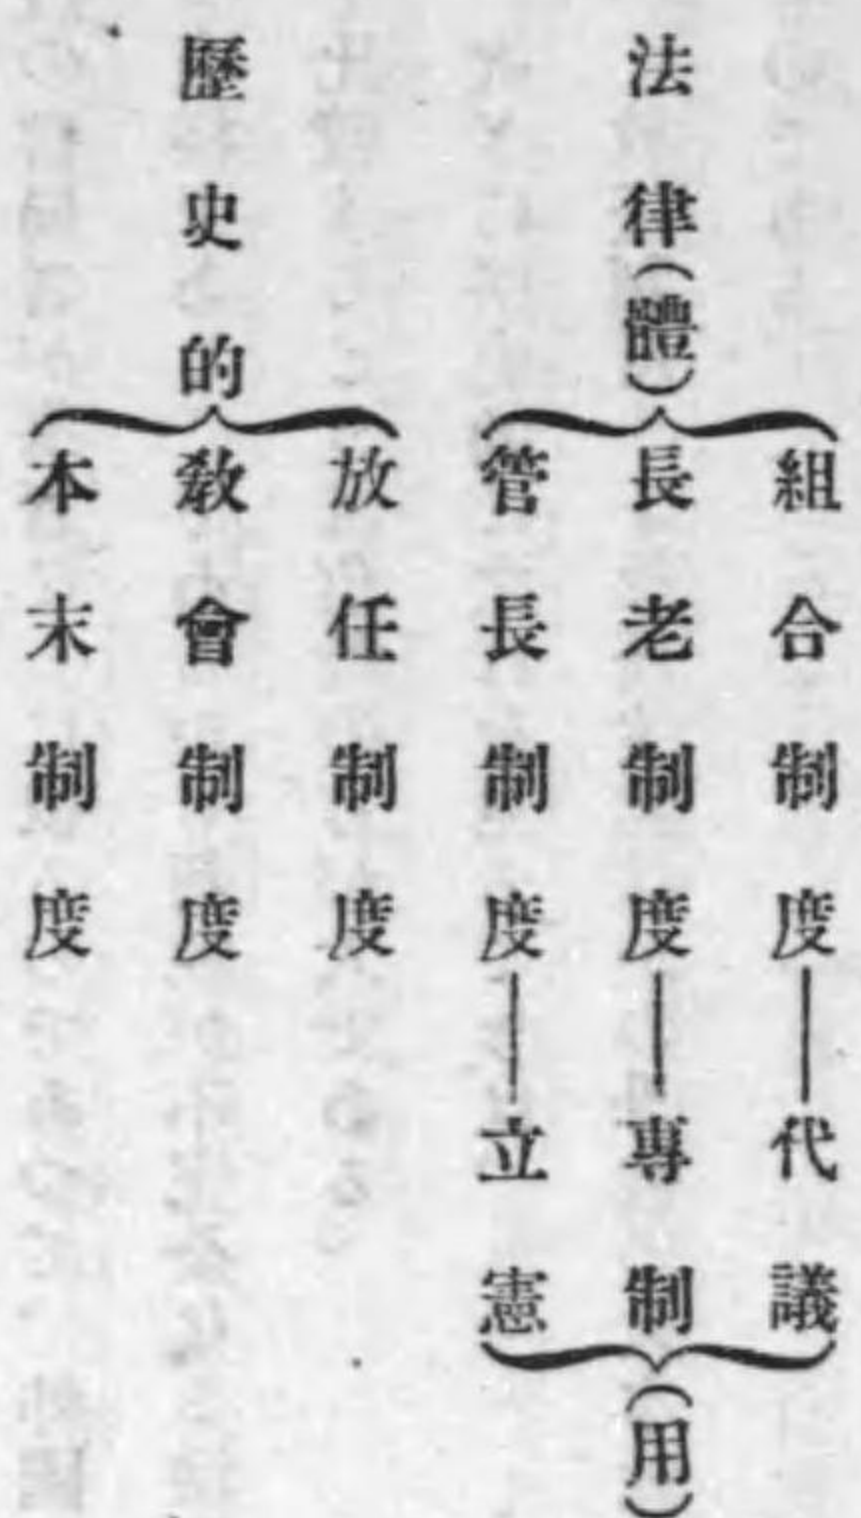 法律(體)
組合制度——代議
長老制度——專制
管長制度——立憲
(用)
歷史的
放任制度
敎會制度
本末制度